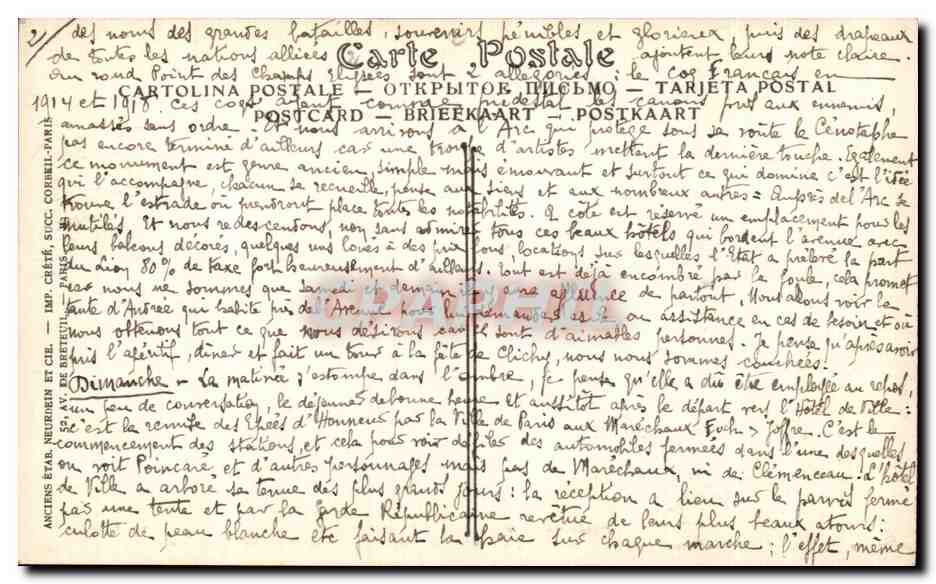 2/ des noms des grandes batailles, souvenirs pénibles et glorieux, puis des drapeaux
de toutes les nations alliées ajoutent leurs note claire.
Carte Postale
Au rond Point des Champs Elysées sont 2 allégories : le coq Français en
CARTOLINA POSTALE — ОТКРЫТОЕ ПИСЬМО — TARJETA POSTAL
1914 et 1918. Ces coqs ayant comme piédestal les canons pris aux ennemis,
POSTCARD — BRIEFKAART — POSTKAART
amassés sans ordre. Et nous arrivons à l'Arc qui protège sous sa voûte le Cénotaphe
pas encore terminé d'ailleurs car une troupe d'artistes mettent la dernière touche. Egalement
ce monument est genre ancien, simple mais émouvant et surtout ce qui domine c'est l'idée
qui l'accompagne, chacun se recueille, pense aux siens et aux nombreux autres = Auprès de l'Arc se
trouve l'estrade où prendront place toutes les notabilités. A côté est réservé un emplacement pour les
mutilés. Et nous redescendons, non sans admirer tous ces beaux hôtels qui bordent l'avenue avec
leurs balcons décorés, quelques uns loués à des prix fous, locations sur lesquelles l'Etat a prélevé la part
du lion 80% de taxe fort heureusement d'ailleurs. Tout est déjà encombré par la foule, cela promet
car nous ne sommes que samedi et demain une affluence de partout. Nous allons voir la
tante d'Andrée qui habite près de l'Avenue pour lui demander aide ou assistance en cas de besoin et où
nous obtenons tout ce que nous désirons car ils sont d'aimables personnes. Je pense qu'après avoir
pris l'apéritif, dîner et fait un tour à la fête de Clichy, nous nous sommes couchées.
Dimanche – La matinée s'estompe dans l'ombre, je pense qu'elle a dû être employée au repos,
un peu de conversation, le déjeuner de bonne heure et aussitôt après le départ vers l'Hôtel de Ville :
c'est la remise des Epées d'Honneur par la Ville de Paris aux Maréchaux Foch, Joffre. C'est le
commencement des stations, et cela pour voir défiler des automobiles fermées dans l'une desquelles
on voit Poincaré et d'autres personnages mais pas de Maréchaux, ni de Clémenceau. L'hôtel
de Ville a arboré sa tenue des plus grands jours : la réception a lieu sur le parvis fermé
par une tente et par la garde Républicaine revêtue de leurs plus beaux atours :
culotte de peau blanche etc faisant la haie sur chaque marche ; l'effet, même
ANCIENS ÉTAB. NEURDEIN ET CIE. — IMP. CRÉTÉ, SUCC. CORBEIL-PARIS
52, AV. DE BRETEUIL, PARIS
DAPHN